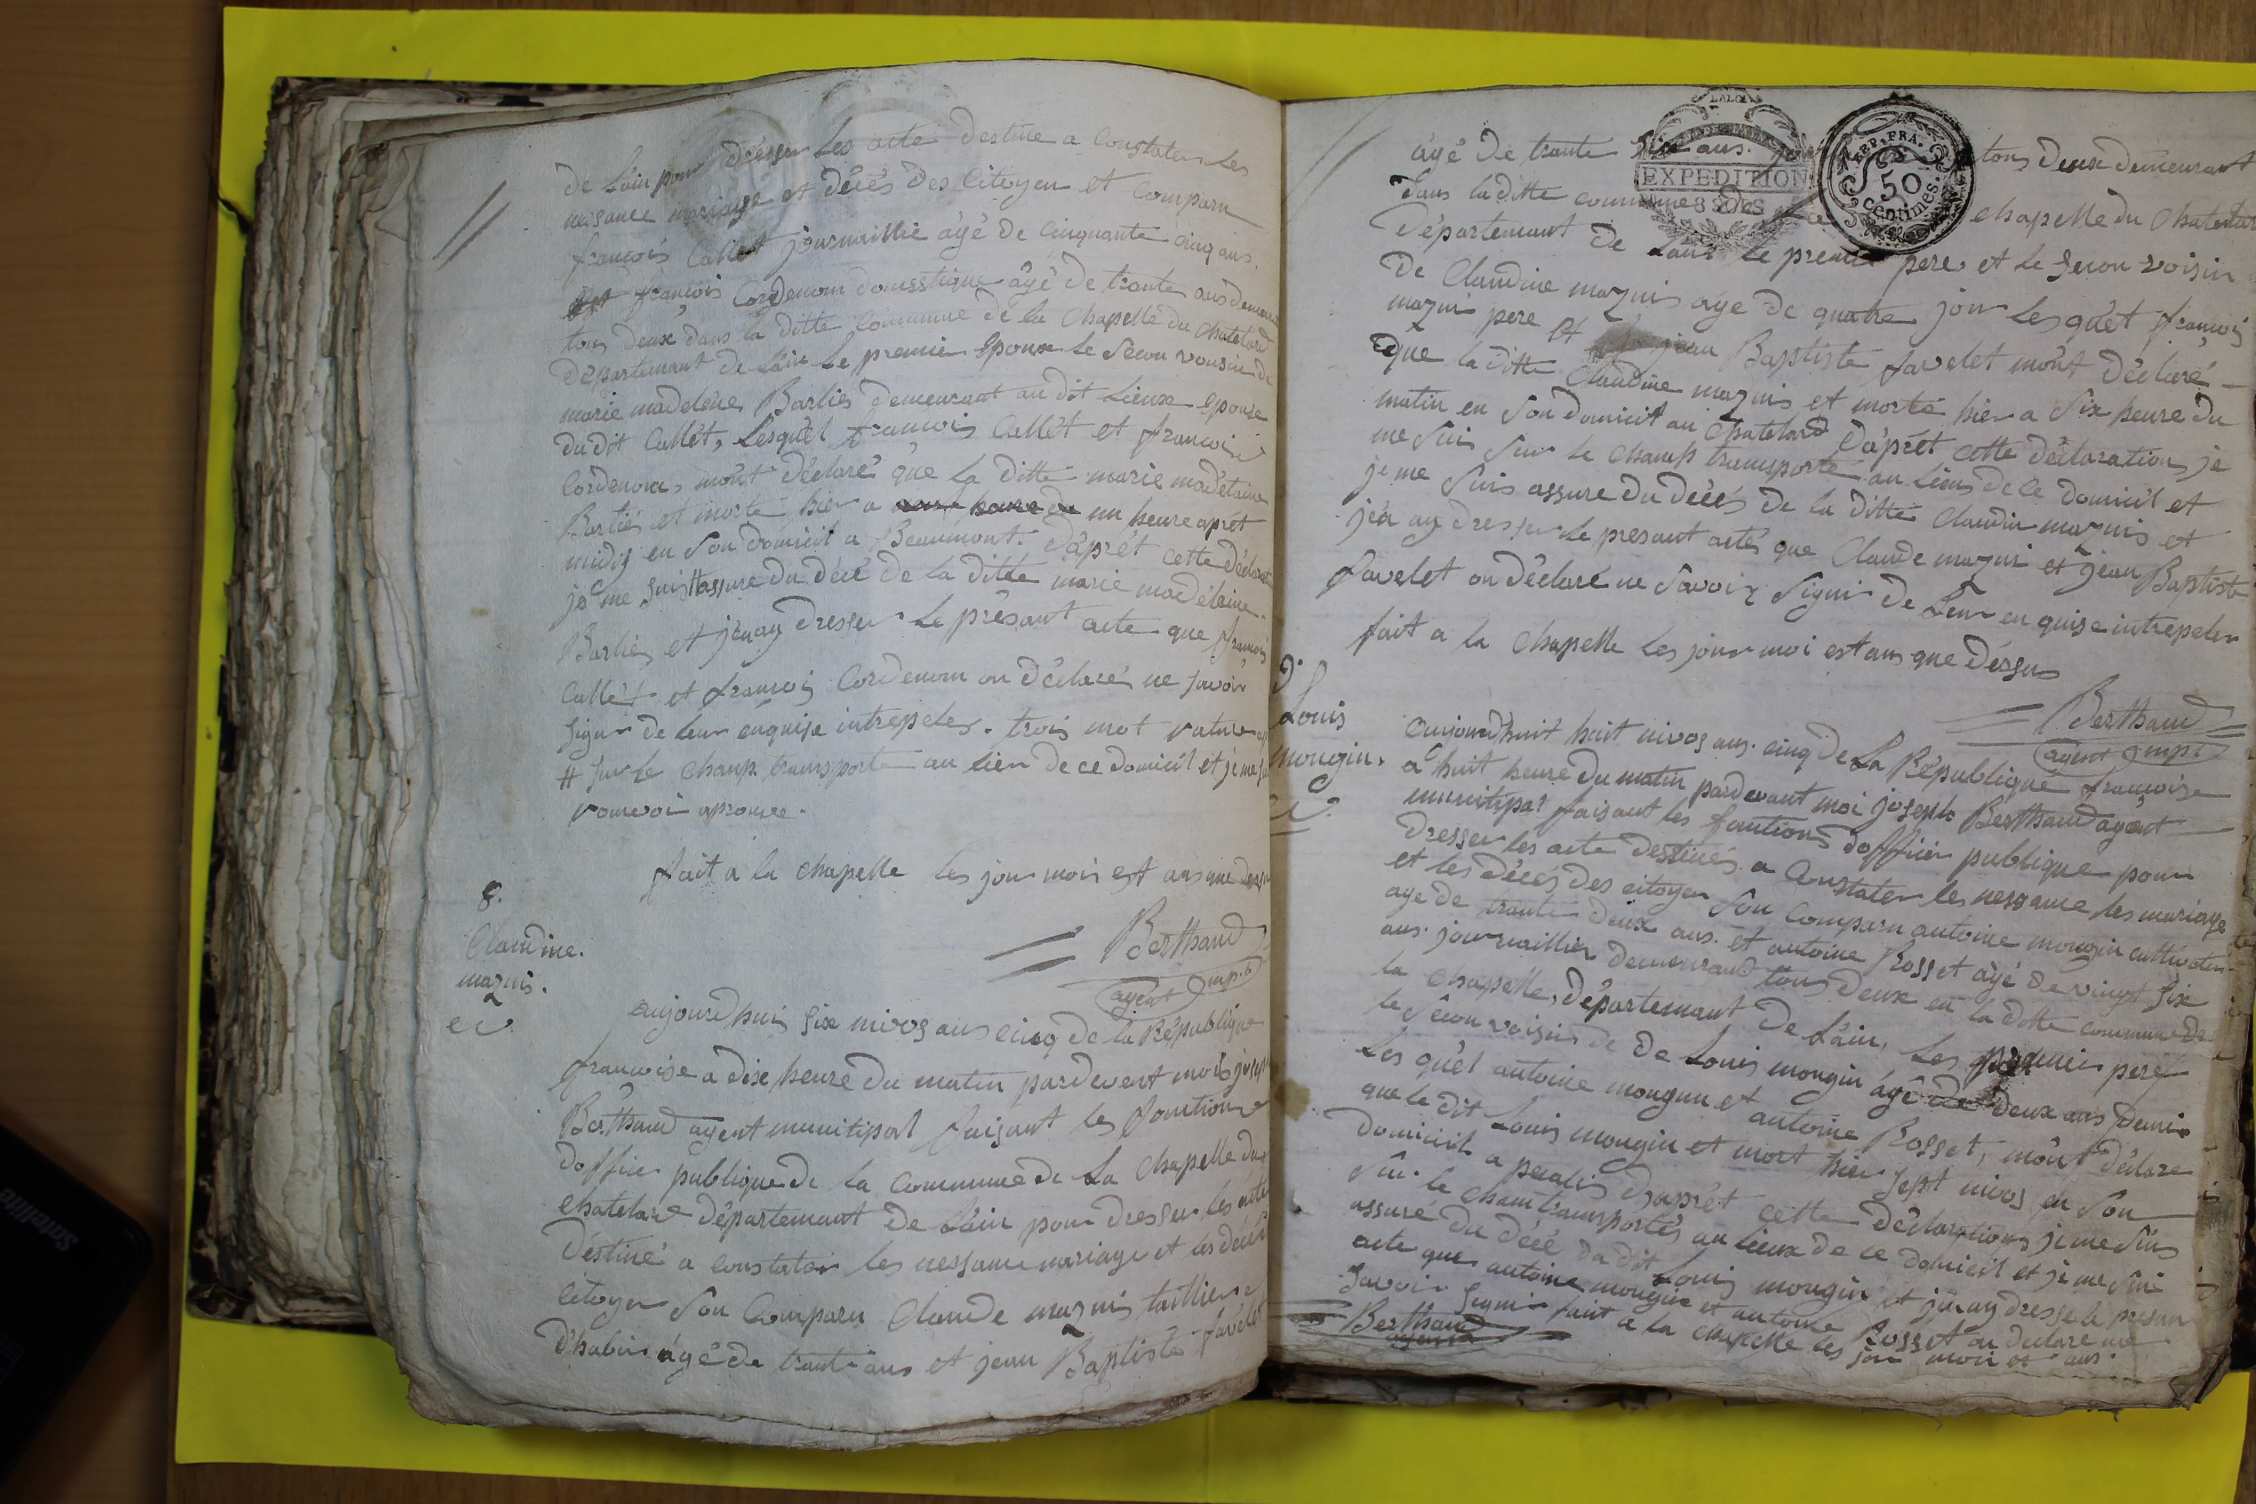 de Lain pour dresser Les acte destine a Constater Les
naisance mariage et décès des Citoyen et Comparu
francois Callet journaillié âgé de Cinquante cinq ans.
et françois Cordenom domestique âgé de trante ans demeurant
tous deux dans la ditte Commune de la chapelle du chatelard
département de Lain le premier Epoux le Secon voisin de
marie madeleine Barlies demeurant au dit Lieux epouse
du dit Callet, Lesquel francois Callet et francois
Cordenom, mont déclaré que La ditte marie madelaine
Barlies et morte hier a un heure aprêt
midy en Son domicil a Beaumont. Daprêt cette déclaration
je me suis # assure du décé de la ditte marie madelaine
Barlies et jenay dresser Le présant acte que francois
Callet et francois Cordenom on déclaré ne savoir
signer de leur enquise intrepeler. trois mot rature
# sur le champ transporte au lieu de ce domicil et je me suis
ranvoi aprouvee.
fait a la chapelle les jour mois est ans que dessus
Berthaud
agent mp.l
8.
Claudine.
maznis.
aujourdhui six nivos ans cinq de la République
françoise a dixe heure du matin pardevent mois joseph
Berthaud agent munitipal faisant les fonction
doffier publique de la commune de La chapelle du
chatelard département de Lain pour dresser les acte
déstiné a constater les nessance mariage et les décés
Citoyen Son Comparu Claude maznis taillieur
d'habis âgé de trante ans et jean Baptiste favelet
LA LOI
EXPEDITION
REP. FRA.
50
centimes.
âgé de trante six ans. tous deux demeurant
dans la ditte commune de chapelle du chatelar
Département de Lain Le premier pere et le secon voisin
de Claudine maznis âge de quatre jour Lesquet françois
maznis pere et jean Baptiste favelet mont déclaré
que la ditte Claudine maznis et morte hier a Six heure du
matin en Son domicil au chatelard Daprêt cette déclaration je
me Suis Sur le champ transporté au lieu de ce domicil et
je me Suis assure du décés de la ditte Claudine maznis et
jen ay dresser le presant actes que Claude maznis et jean Baptiste
favelet on déclaré ne Savoir Signer de Leur enquise intrepeler
fait a la chapelle Les jour moi est ans que dessus
Berthaud
agent mp.l
9.
Louis
mougin.
aujourdhuit huit nivos ans. cinq de La République françoise
a huit heure du matin pardevant moi joseph Berthaud agent
munitipal faisant les fontion doffier publique pour
dresser les acte destinés a Constater les nessance les mariage
et les décés des citoyen Son Comparu antoine mougin cultivateur
age de trante deux ans. et antoine Rosset âgé de vingt six
ans. journaillier demeurant tous deux en la ditte commune de
la chapelle, département de Lain, Les premier pere
le Secon voisin de de Louis mougin âgé de deux ans demi
Les quel antoine mougin et antoine Rosset, mont déclare
que le dit Louis mougin et mort hier sept nivos en Son
domicil a daprêt cette déclarations je me Suis
Sur le cham transportés au lieux de ce domicil et je me Sui
assuré du décé du dit Louis mougin et jen ay dresse le presan
acte que antoine mougin et antoine Rosset on declare ne
Savoir signir fait a la chapelle les jour moi et ans.
Berthaud
agent